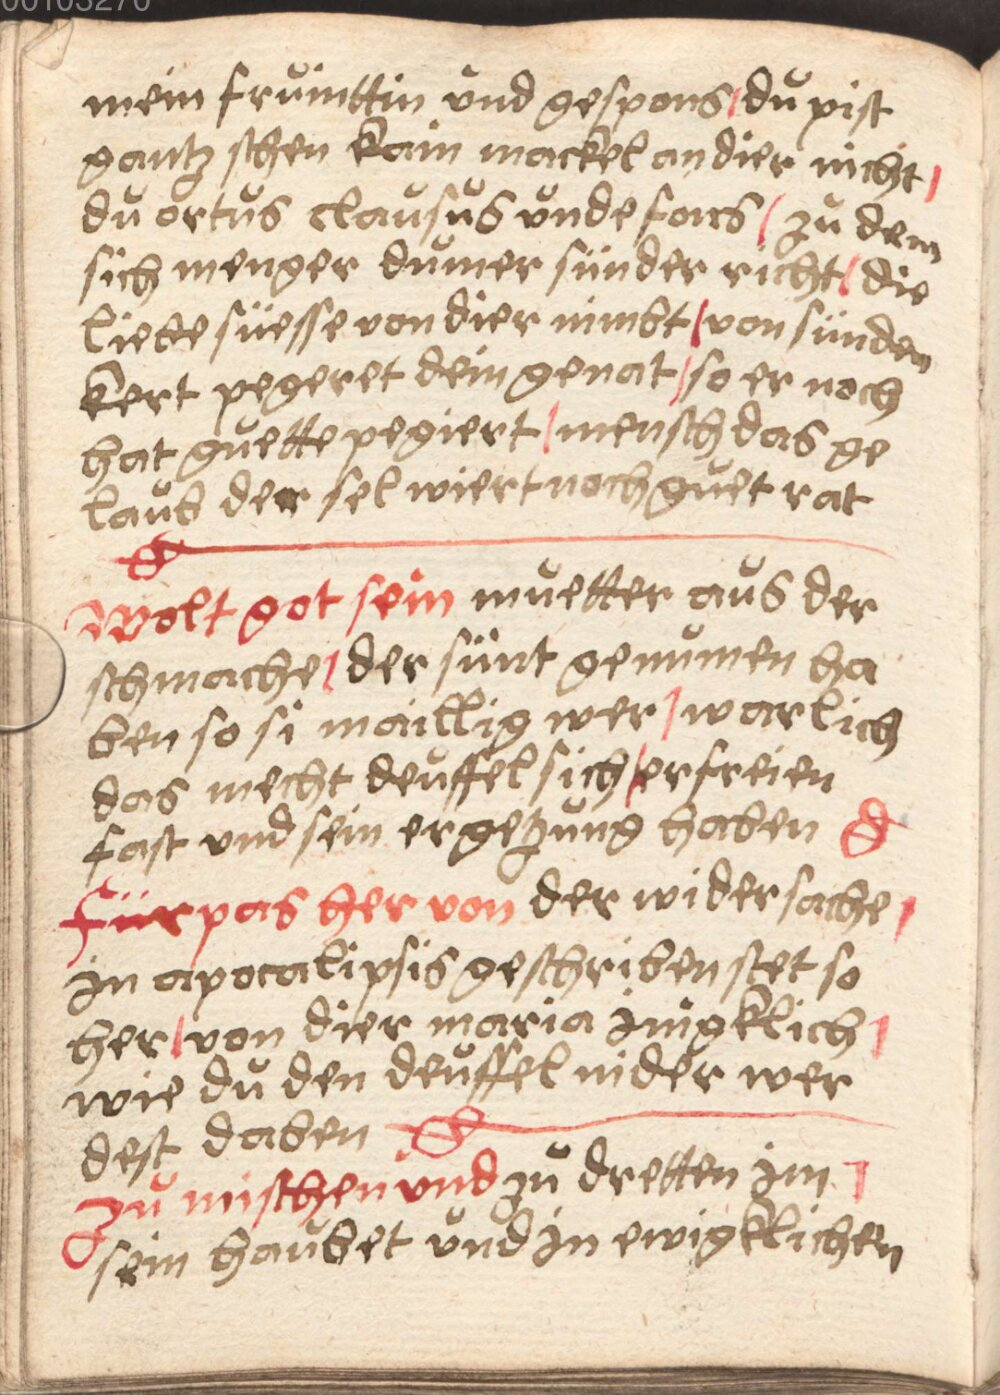 00103270
mein fruinttin und gespons / du pist
gantz schen kain mackel an dier nicht /
du ortus clausus unde fons / zu dem
sich menger dumer sünder richt / die
liette süesse von dier nimbt / von sünden
kert pegeret dein genat / so er noch
hat guette pegiert / mensch das ge
laub der sel wiert noch guet rat
Wolt got sein muetter aus der
schmache / der sünt genumen ha
ben so si maillig wer / warlich
das mecht deuffel sich / erfreien
fast und sein ergetzung haben
Fürpas her von der widersache /
in apocalipsis geschriben stet so
her / von dier maria jungklich /
wie du den deuffel nider wer
dest daben
Zu mischen und zu dretten im /
sein haubet und in ewigklichen